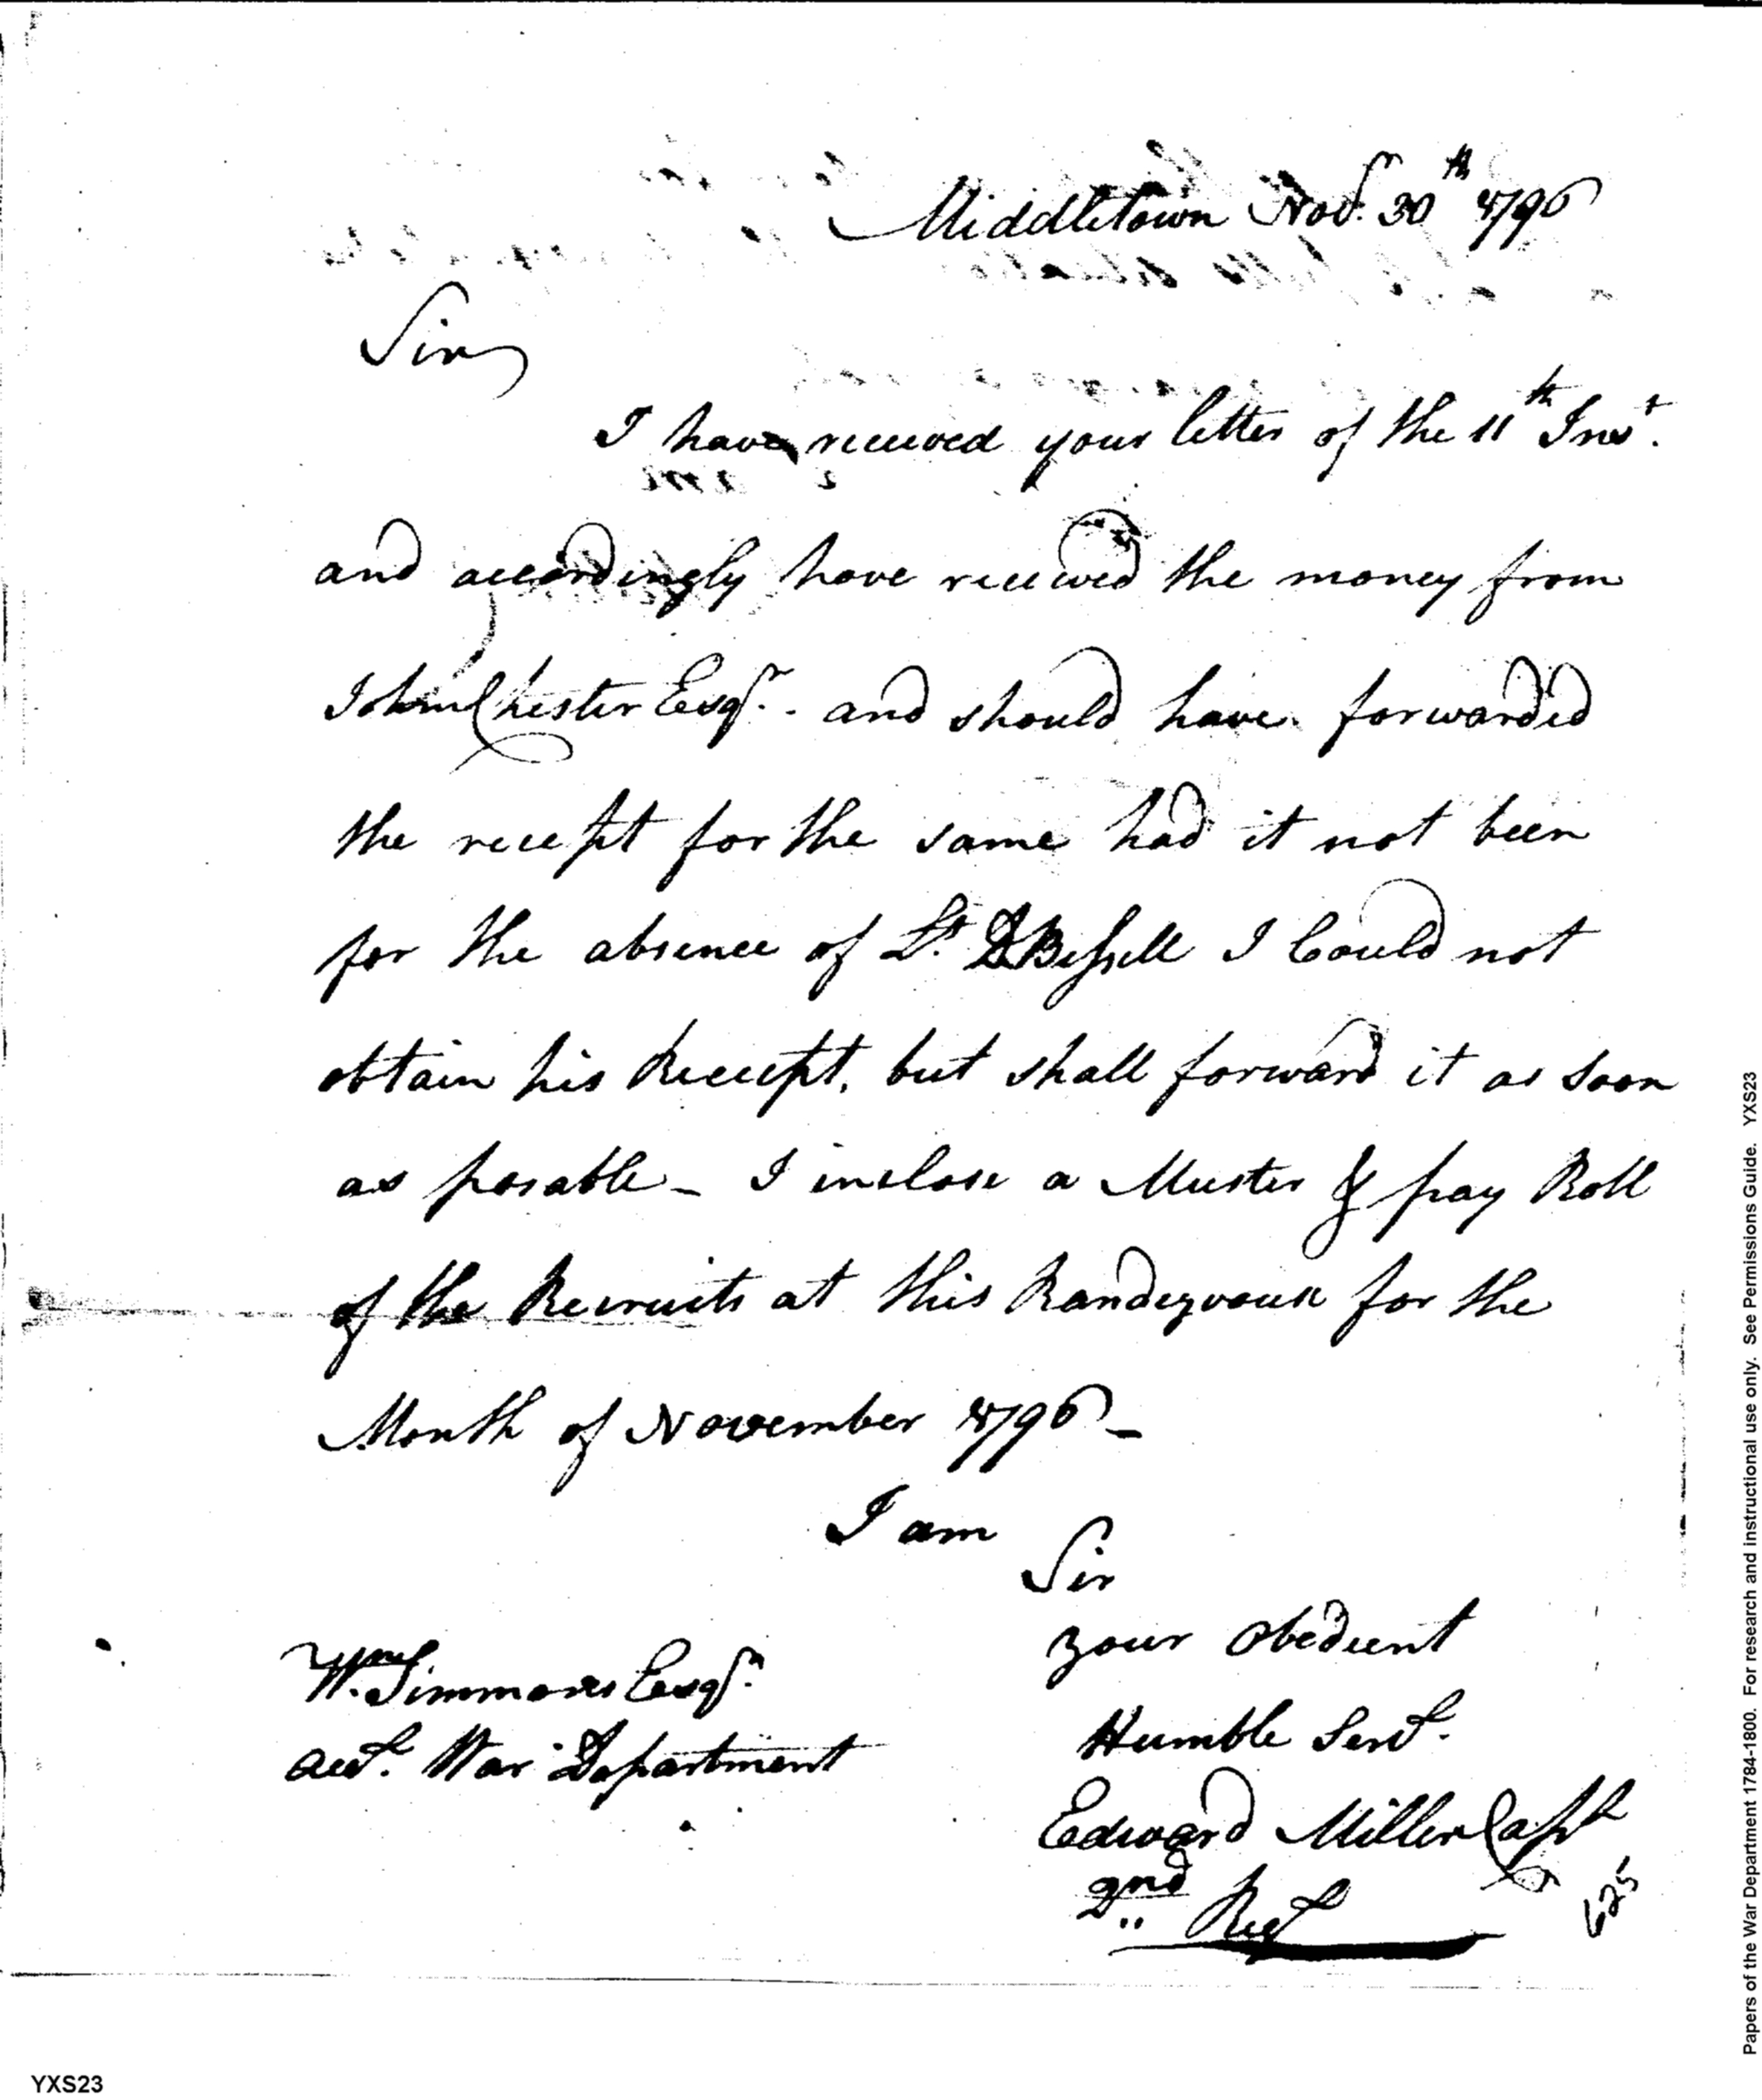 Middletown Novr. 30th 1796
Sir
I have received your letter of the 11th Inst.
and accordingly have received the money from
John Chester Esqr. and should have forwarded
the recept for the same had it not been
for the absence of Lt. D Bissell I Could not
obtain his Receipt, but shall forward it as soon
as posable - I inclose a Muster & pay Roll
of the Recruits at this Randezvous for the
Month of November 1796 -
I am
Sir
your obedient
Humble Servt.
Edward Miller Capt
2nd Regt
Wm. Simmons Esqr.
Acct. War Department
525
Papers of the War Department 1784-1800. For research and instructional use only. See Permissions Guide. YXS23
YXS23